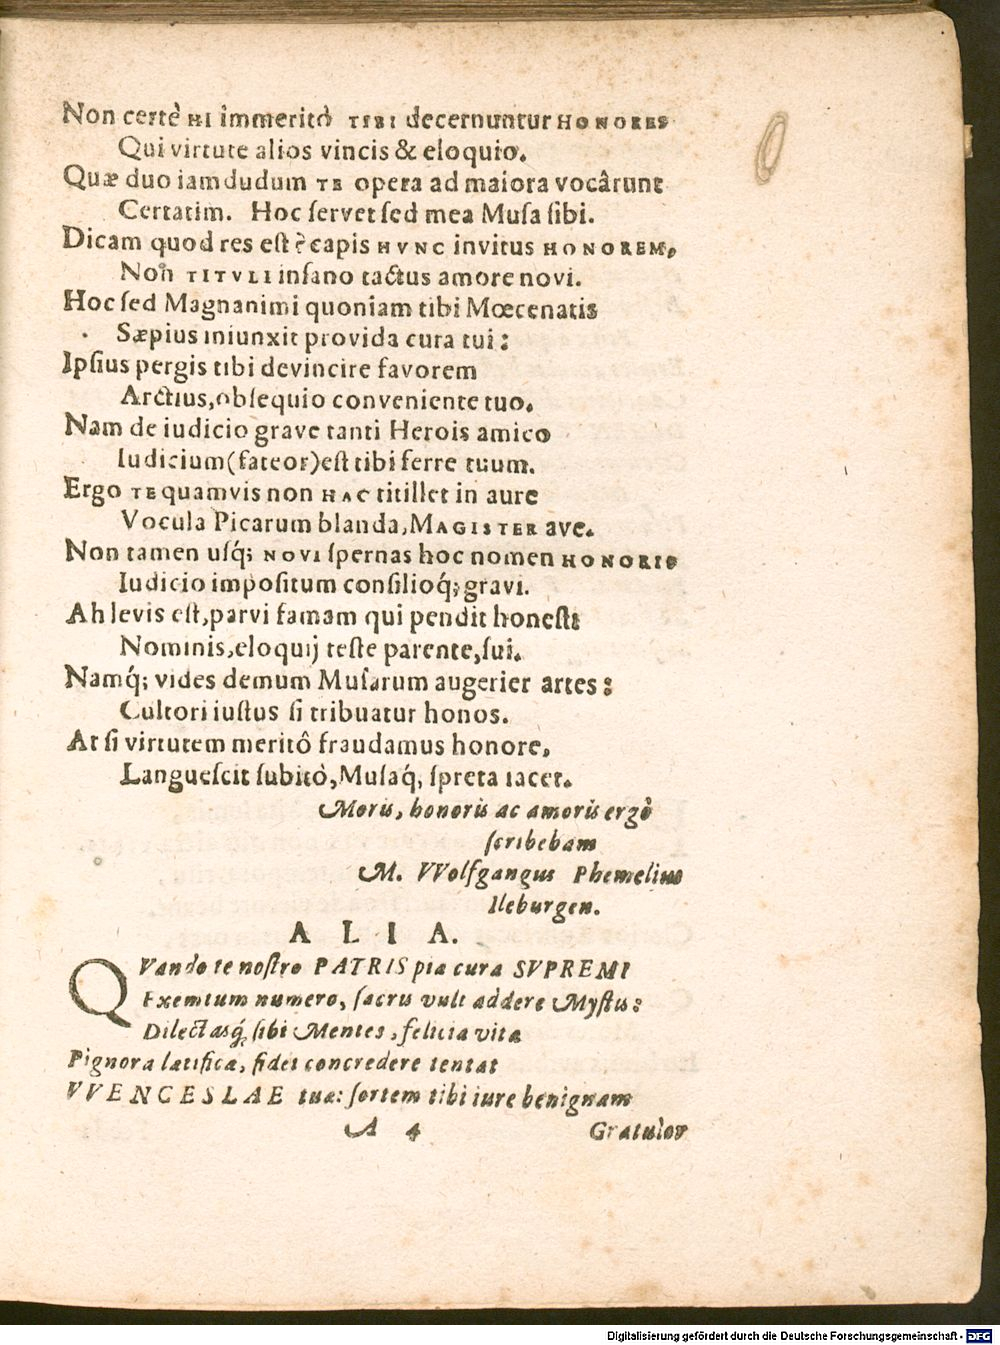 Non certè HI immeritò TIBI decernuntur HONORES
Qui virtute alios vincis & eloquio.
Quæ duo iamdudum TE opera ad maiora vocârunt
Certatim. Hoc servet sed mea Musa sibi.
Dicam quod res est: capis HVNC invitus HONOREM,
Non TITVLI insano tactus amore novi.
Hoc sed Magnanimi quoniam tibi Mœcenatis
Sæpius iniunxit provida cura tui:
Ipsius pergis tibi devincire favorem
Arctius, obsequio conveniente tuo.
Nam de iudicio grave tanti Herois amico
Iudicium (fateor) est tibi ferre tuum.
Ergo TE quamvis non HAC titillet in aure
Vocula Picarum blanda, MAGISTER ave.
Non tamen usq́; NOVI spernas hoc nomen HONORIS
Iudicio impositum consilioq́; gravi.
Ah levis est, parvi famam qui pendit honesti
Nominis, eloquij teste parente, sui.
Namq́; vides demum Musarum augerier artes:
Cultori iustus si tribuatur honos.
At si virtutem meritô fraudamus honore,
Languescit subitò, Musaq́, spreta iacet.
Moris, honoris ac amoris ergò
scribebam
M. VVolfgangus Phemelius
Ileburgen.
ALIA.
QVando te nostro PATRIS pia cura SVPREMI
Exemtum numero, sacris vult addere Mystis:
Dilectasq́; sibi Mentes, felicia vitæ
Pignora lætificæ, fidei concredere tentat
VVENCESLAE tuæ: sortem tibi iure benignam
A 4 Gratulor
Digitalisierung gefördert durch die Deutsche Forschungsgemeinschaft - DFG